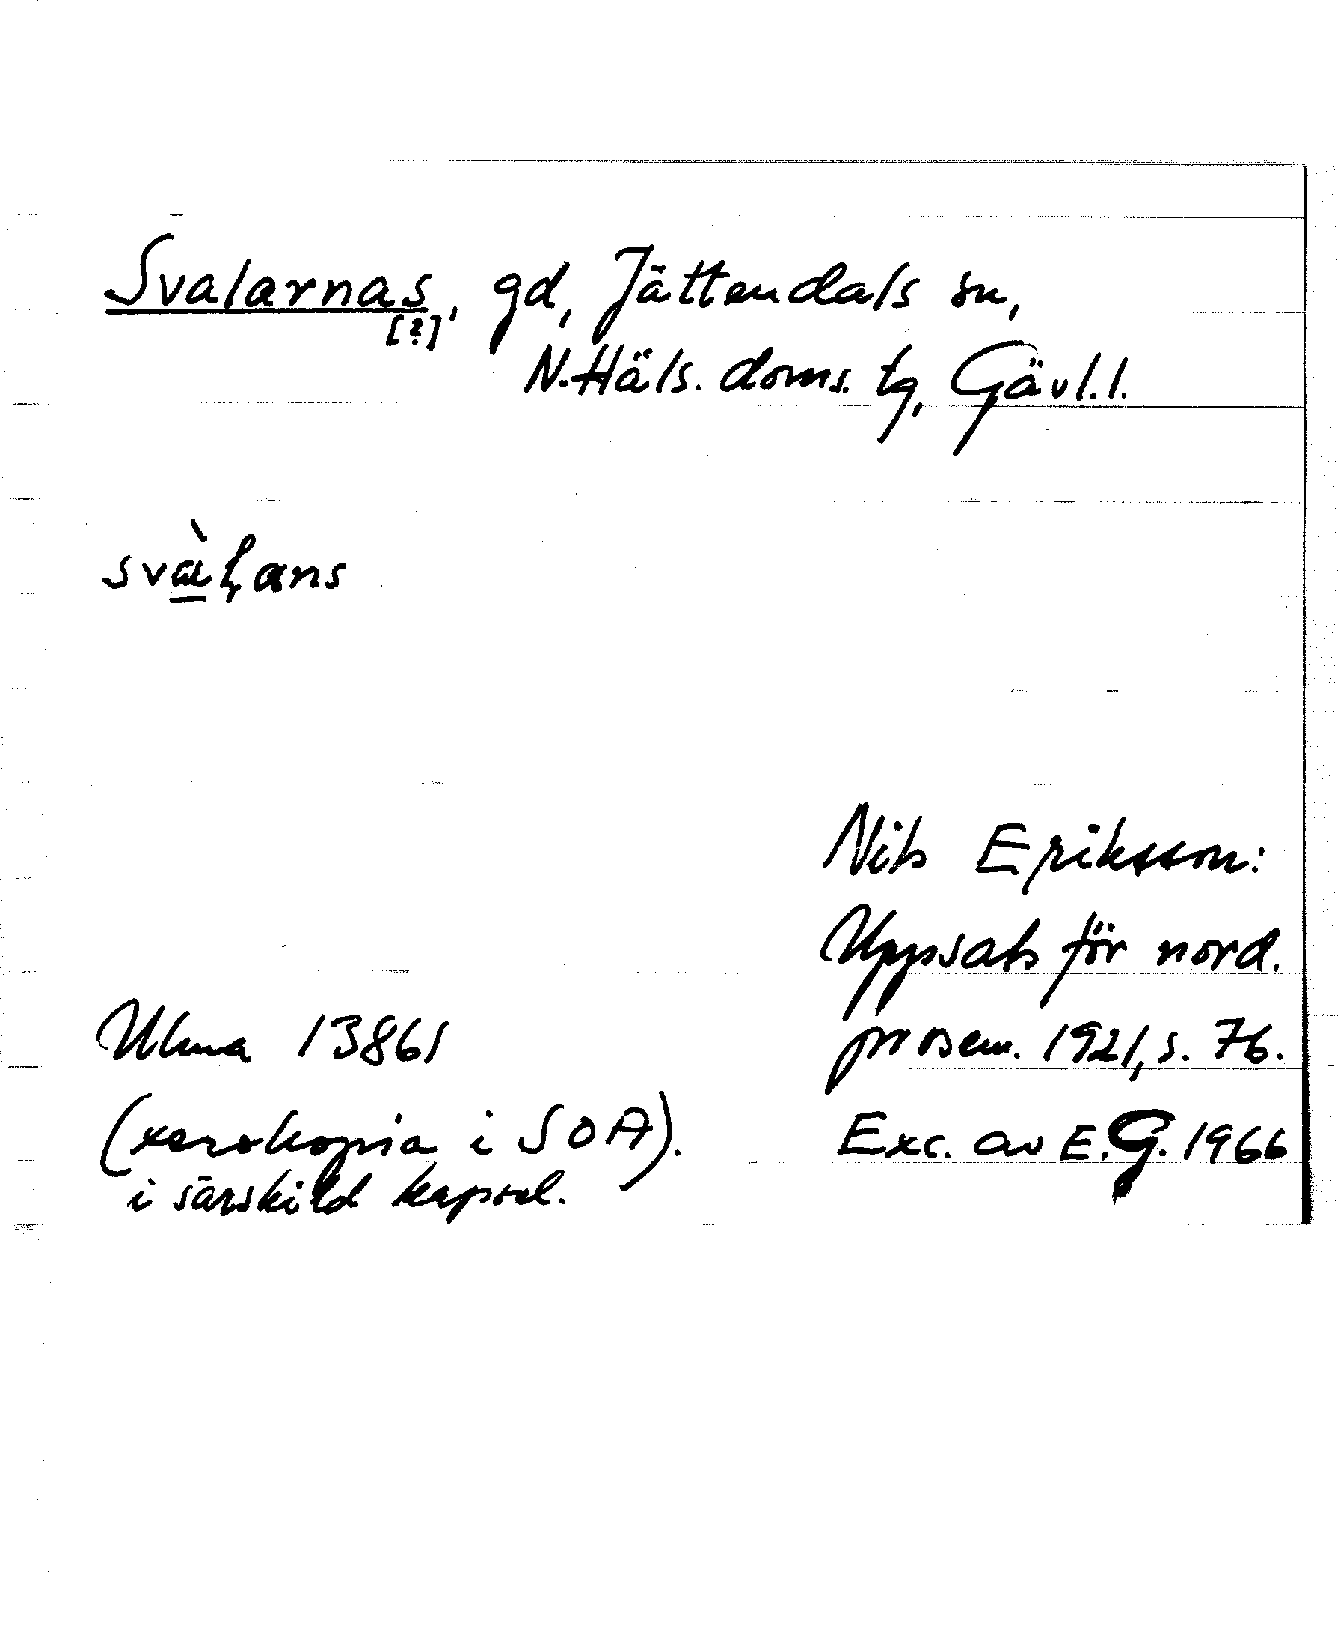 Svalarnas [?], gd, Jättendals sn,
N. Häls. doms. tg, Gävl. l.
svàḷans
Nils Eriksson:
Uppsats för nord.
prosem. 1921, s. 76.
Ulma 13861
(xerokopia i SOA).
i särskild kapsel.
Exc. av E.G. 1966